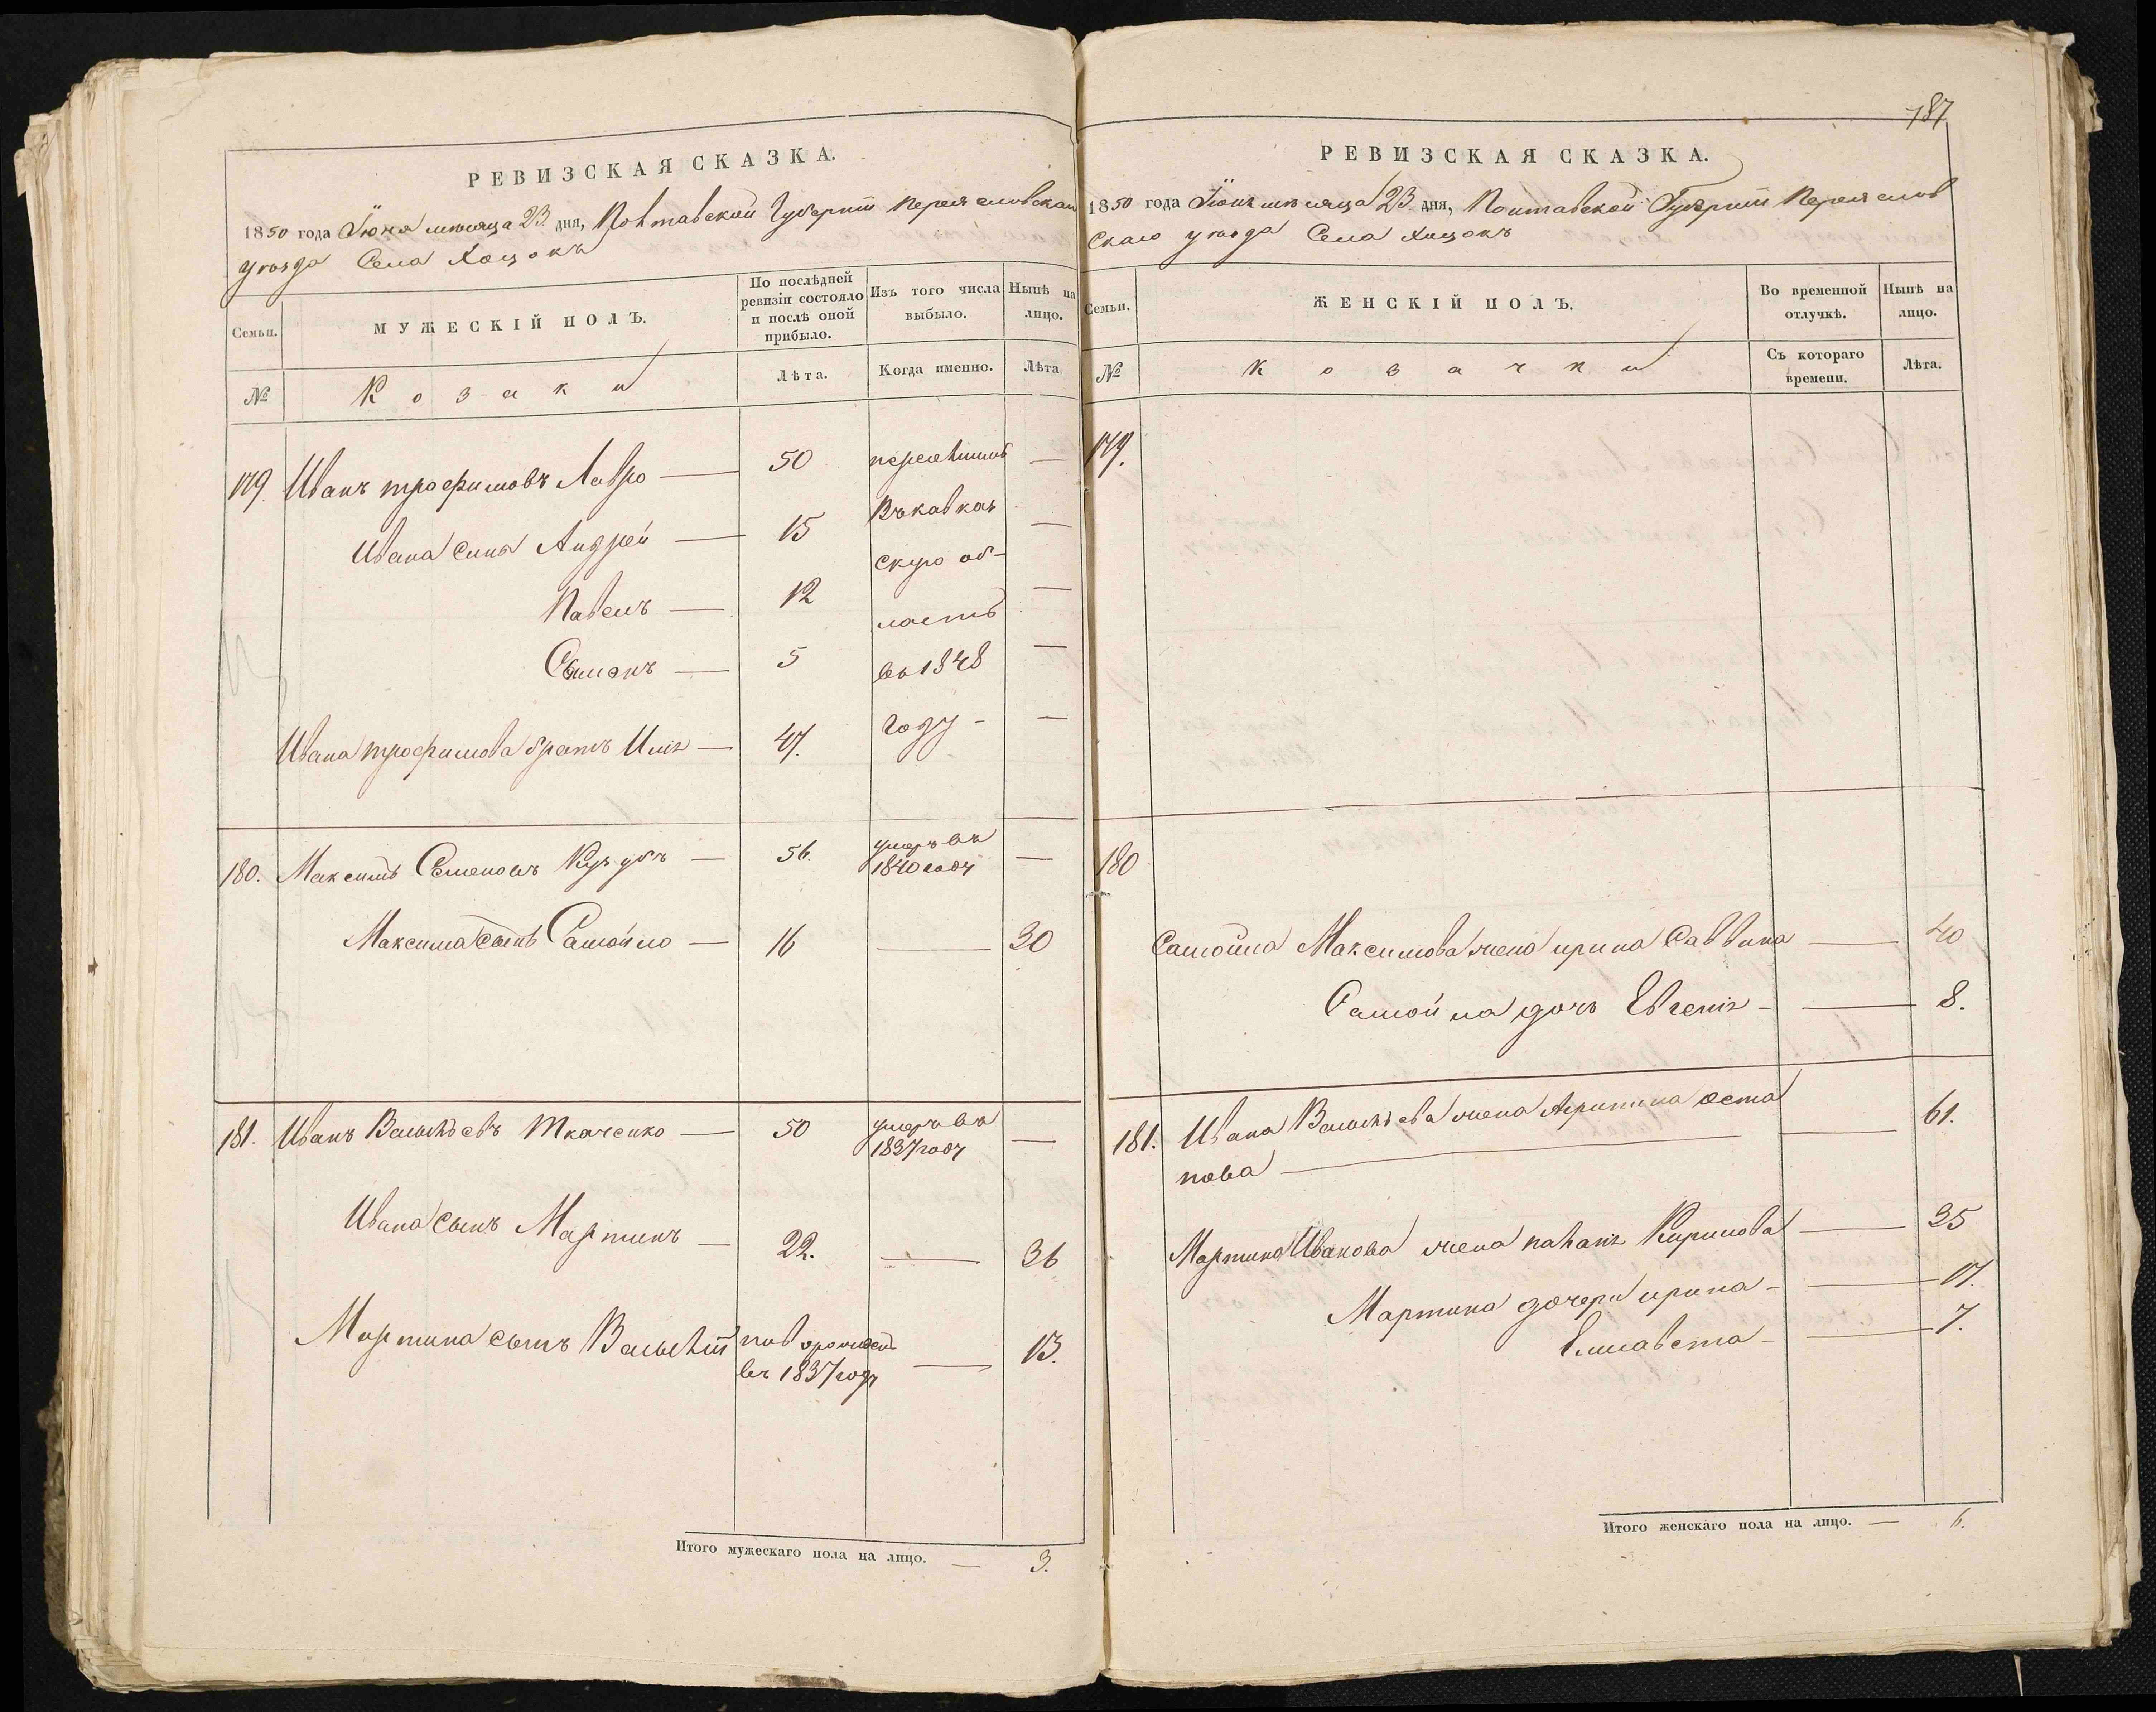 187
РЕВИЗСКАЯ СКАЗКА.
1850 года Іюня месяца 23 дня, Полтавской Губерніи Переяславскаго
уезда Села Хоцокъ
Семьи.
МУЖЕСКІЙ ПОЛЪ.
По послѣдней ревизіи состояло и послѣ оной прибыло.
Изъ того числа выбыло.
Нынѣ на лицо.
№
Козаки
Лѣта.
Когда именно.
Лѣта
179. Иванъ трофимовъ Лавро — 50 переселился —
Ивана синъ Андрей — 15 Въ кавказ —
скую об-
Павелъ — 12 ласть —
Семенъ — 5 въ 1848 —
Ивана трофимова братъ Илія — 47. году - —
180. Максимъ Семеновъ — 56. умеръ въ 1840 году —
Максима сынъ Самойло — 16 — 30
181. Иванъ Василіевъ Ткаченко — 50 умеръ въ 1837 году —
Ивана сынъ Мартинъ — 22. — 36
Мартина сынъ Василій новорожден въ 1837 году — 13.
Итого мужескаго пола на лицо. — 3.
РЕВИЗСКАЯ СКАЗКА.
1850 года Іюня месяца 23 дня, Полтавской Губерніи Переяслав
скаго уезда Села Хоцокъ
Семьи.
ЖЕНСКІЙ ПОЛЪ.
Во временной отлучкѣ.
Нынѣ на лицо.
№
Козачки
Съ котораго времени.
Лѣта.
179.
180
Самойла Максимова жена ирина Саввина — 40
Самойла дочь Евгенія — — 8.
181. Ивана Василіева жена Агрипина Оста — 61.
пова —
Мартина Иванова жена Кирилова — 35
Мартина дочери ирина — — 17.
Елисавета — — 7.
Итого женскаго пола на лицо. — 6.